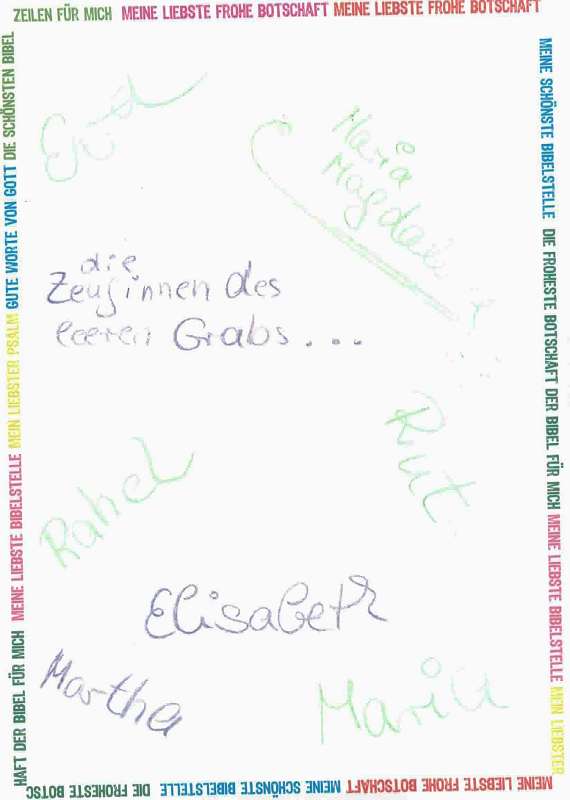 ZEILEN FÜR MICH MEINE LIEBSTE FROHE BOTSCHAFT MEINE LIEBSTE FROHE BOTSCHAFT
MEINE SCHÖNSTE BIBELSTELLE DIE FROHESTE BOTSCHAFT DER BIBEL FÜR MICH MEINE LIEBSTE BIBELSTELLE MEIN LIEBSTER
MEINE LIEBSTE FROHE BOTSCHAFT MEINE SCHÖNSTE BIBELSTELLE DIE FROHESTE BOTSC
HAFT DER BIBEL FÜR MICH MEINE LIEBSTE BIBELSTELLE MEIN LIEBSTER PSALM GUTE WORTE VON GOTT DIE SCHÖNSTEN BIBEL
Maria
Magdalena
die
Zeuginnen des
leeren Grabs...
Rut
Rahel
Elisabeth
Martha
Maria